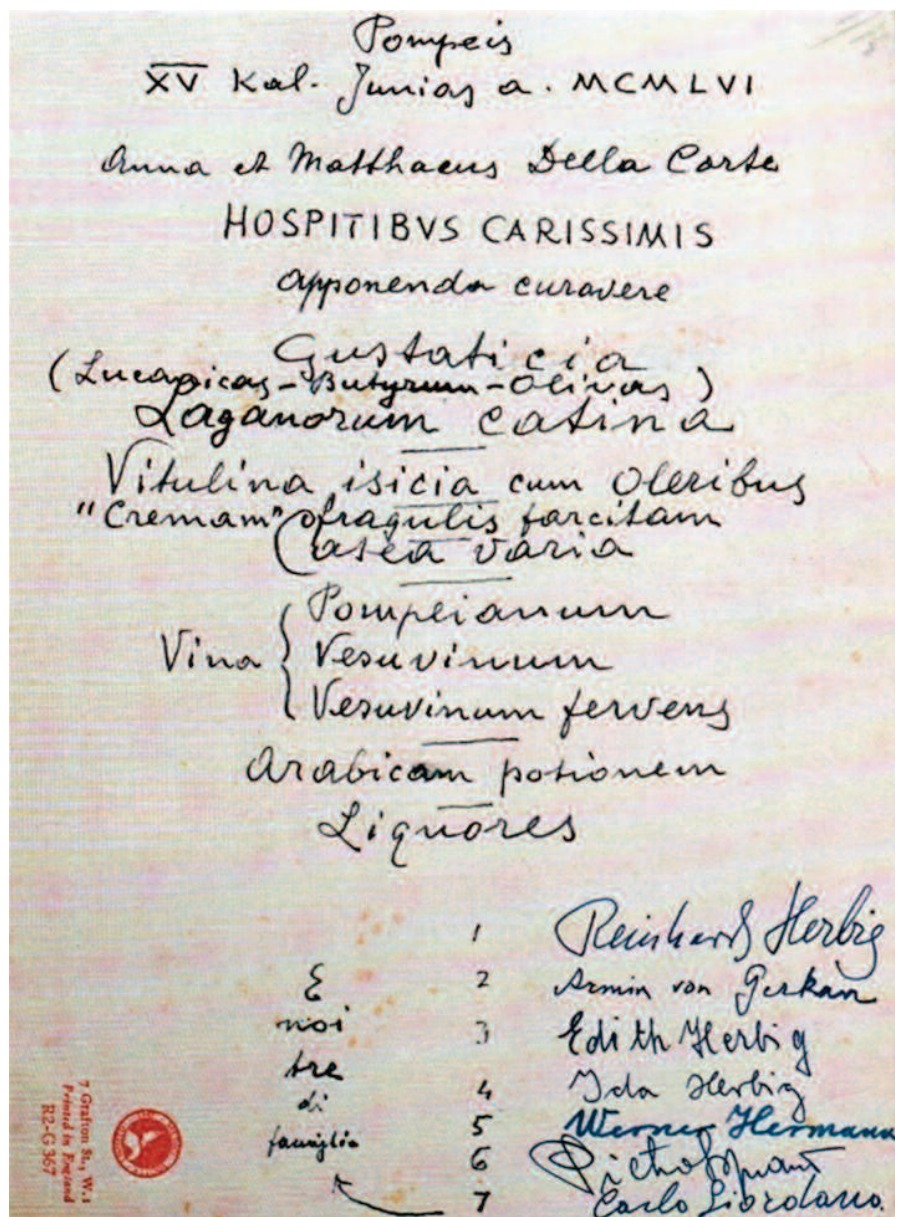 Pompeis
XV Kal. Junias a. MCMLVI
Anna et Matthaeus Della Corte
HOSPITIBVS CARISSIMIS
apponenda curavere
Gustaticia
(Lucanicas - Butyrum - Olivas)
Laganorum catina
Vitulina isicia cum Oleribus
"Cremam" fragulis farcitam
Casea varia
Vina { Pompeianum
Vesuvinum
Vesuvinum fervens
Arabicam potionem
Liquores
1 Reinhard Herbig
E 2 Armin von Gerkan
noi 3 Edith Herbig
tre 4 Ida Herbig
di 5 Werner Hermann
famiglia 6
7 Carlo Giordano
7 Grafton St., W.1
Printed in England
R2-G367